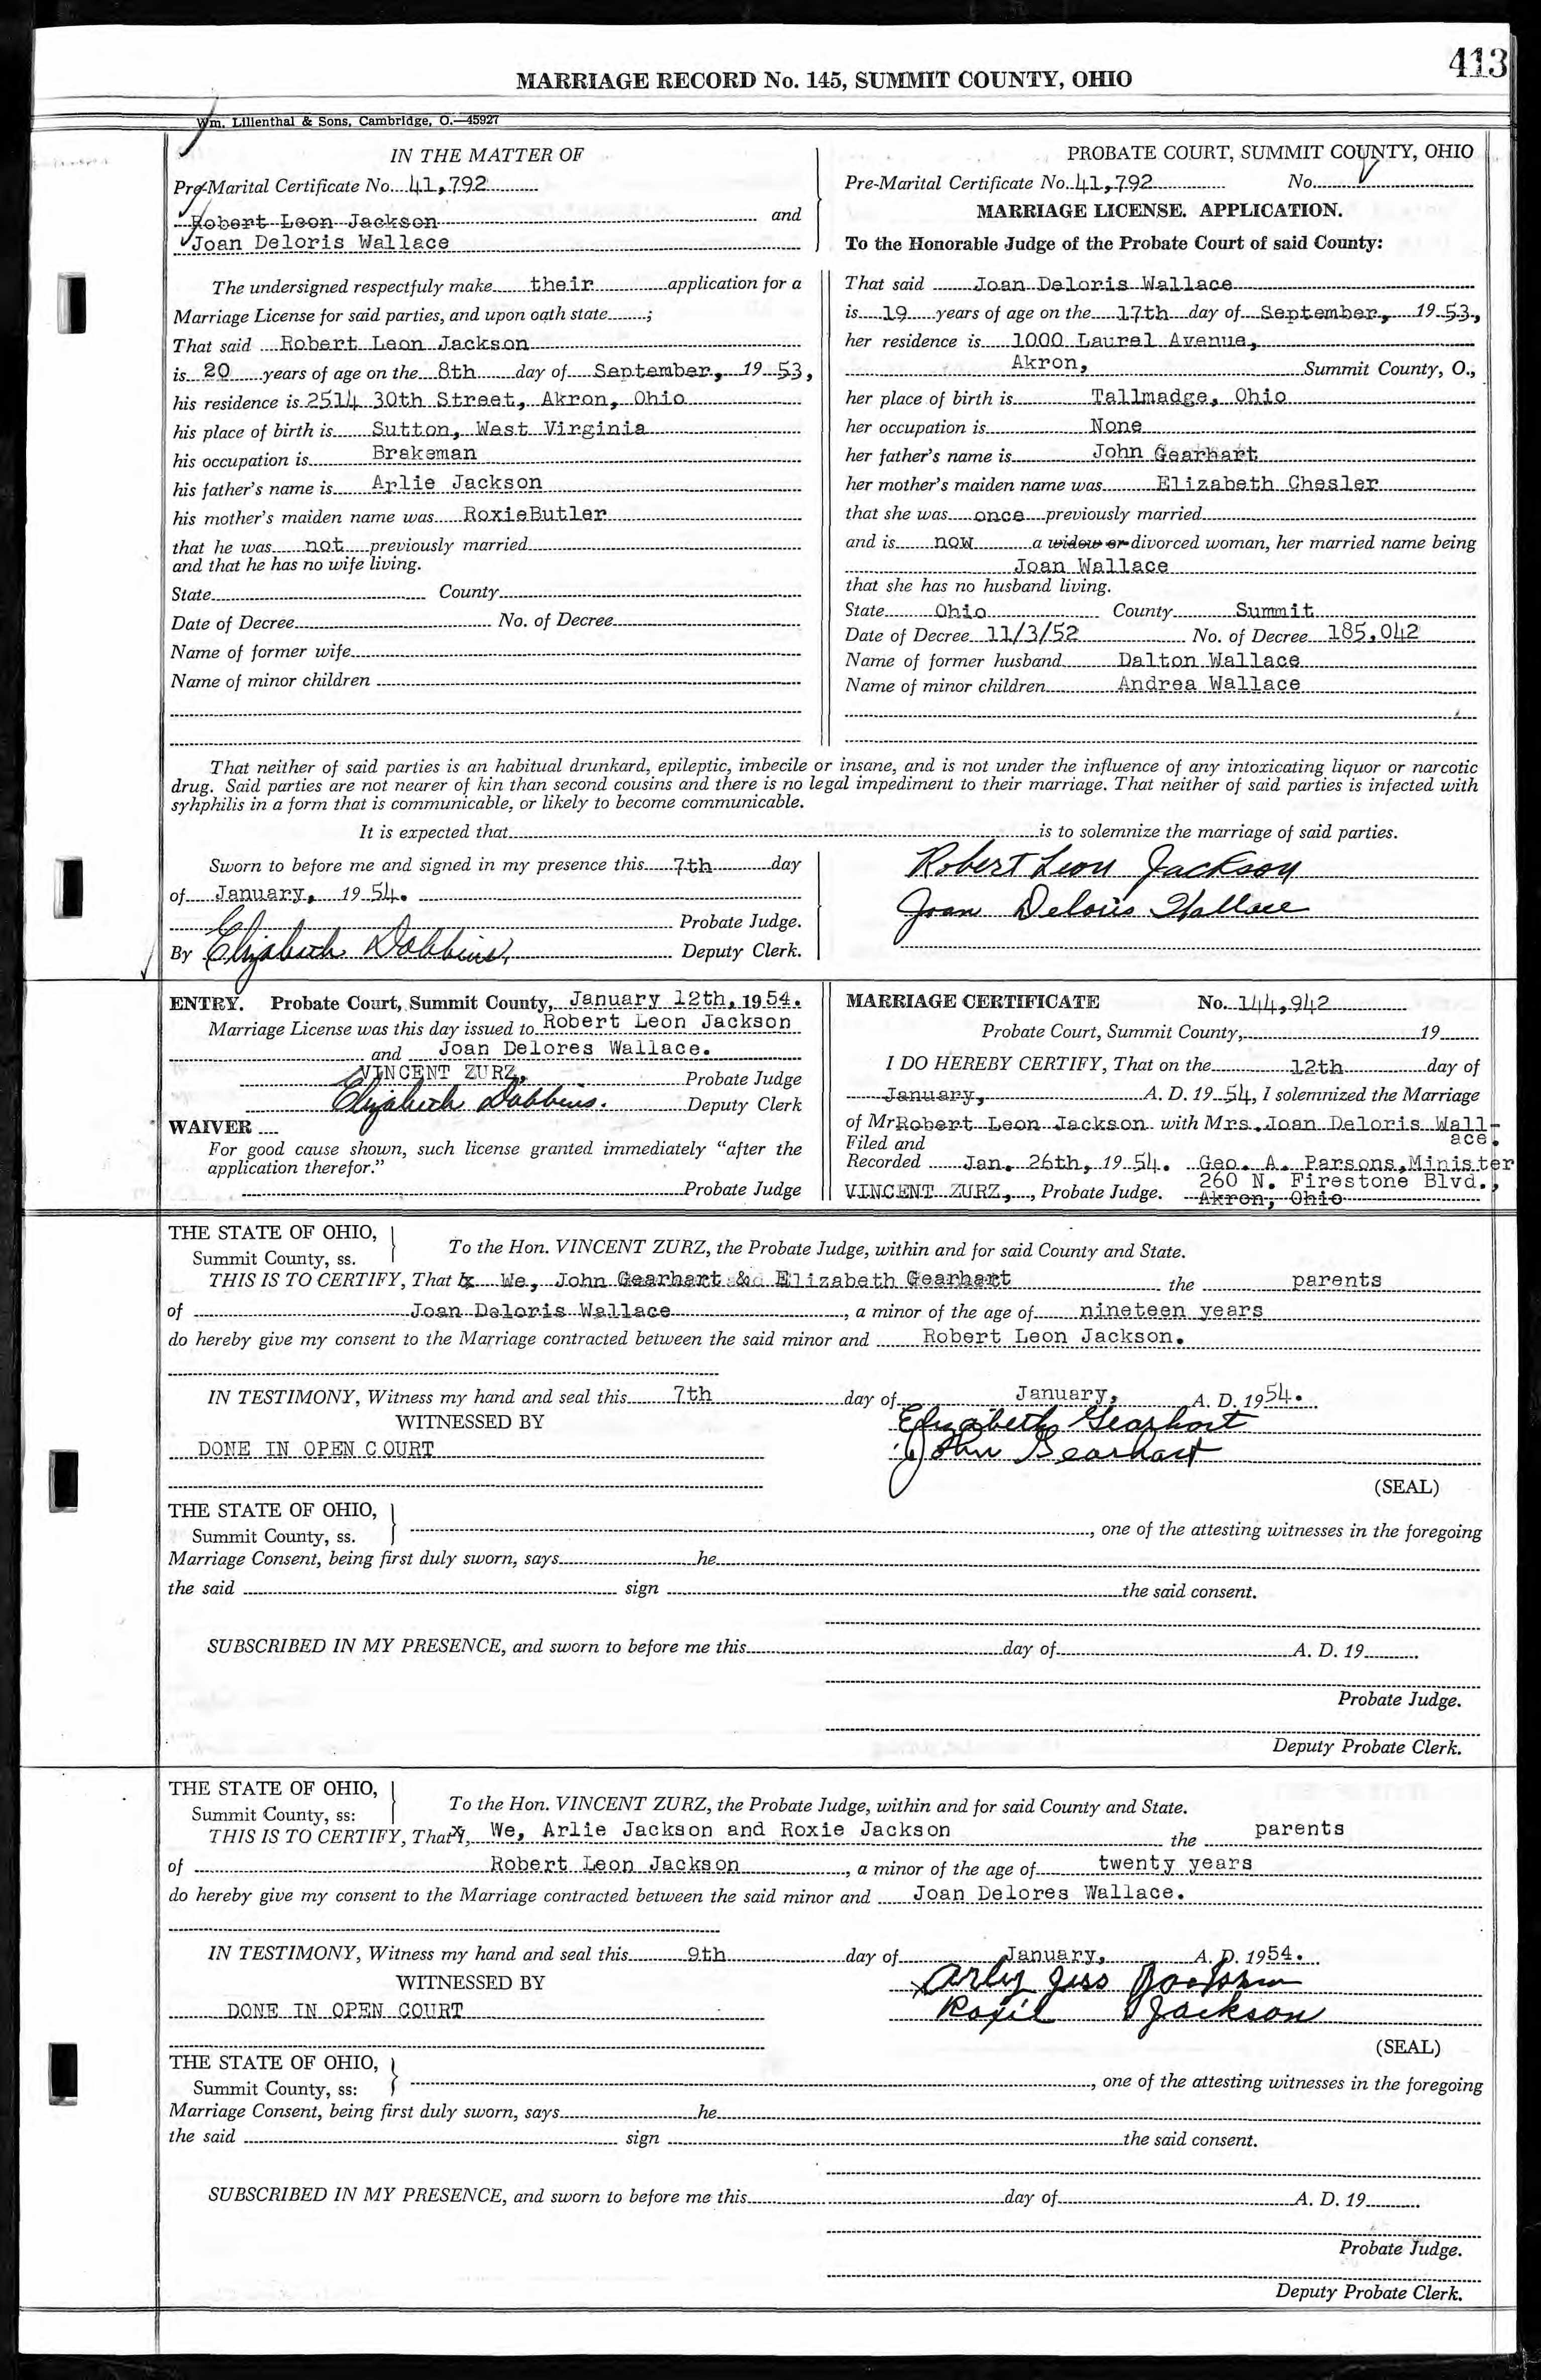 413
MARRIAGE RECORD No. 145, SUMMIT COUNTY, OHIO
Wm. Lilienthal & Sons, Cambridge, O.—45927
IN THE MATTER OF
Pre-Marital Certificate No. 41,792
Robert Leon Jackson and
Joan Deloris Wallace
PROBATE COURT, SUMMIT COUNTY, OHIO
Pre-Marital Certificate No. 41,792 No.
MARRIAGE LICENSE. APPLICATION.
To the Honorable Judge of the Probate Court of said County:
The undersigned respectfuly make their application for a
Marriage License for said parties, and upon oath state ;
That said Robert Leon Jackson
is 20 years of age on the 8th day of September, 19 53,
his residence is 2514 30th Street, Akron, Ohio
his place of birth is Sutton, West Virginia
his occupation is Brakeman
his father's name is Arlie Jackson
his mother's maiden name was RoxieButler
that he was not previously married
and that he has no wife living.
State County
Date of Decree No. of Decree
Name of former wife
Name of minor children
That said Joan Deloris Wallace
is 19 years of age on the 17th day of September, 19 53,
her residence is 1000 Laurel Avenue,
Akron, Summit County, O.,
her place of birth is Tallmadge, Ohio
her occupation is None
her father's name is John Gearhart
her mother's maiden name was Elizabeth Chesler
that she was once previously married
and is now a widow or divorced woman, her married name being
Joan Wallace
that she has no husband living.
State Ohio County Summit
Date of Decree 11/3/52 No. of Decree 185,042
Name of former husband Dalton Wallace
Name of minor children Andrea Wallace
That neither of said parties is an habitual drunkard, epileptic, imbecile or insane, and is not under the influence of any intoxicating liquor or narcotic
drug. Said parties are not nearer of kin than second cousins and there is no legal impediment to their marriage. That neither of said parties is infected with
syhphilis in a form that is communicable, or likely to become communicable.
It is expected that is to solemnize the marriage of said parties.
Sworn to before me and signed in my presence this 7th day
of January, 19 54.
Probate Judge.
By Elizabeth Dobbins, Deputy Clerk.
Robert Leon Jackson
Joan Deloris Wallace
ENTRY. Probate Court, Summit County, January 12th, 1954.
Marriage License was this day issued to Robert Leon Jackson
and Joan Delores Wallace.
VINCENT ZURZ, Probate Judge
Elizabeth Dobbins. Deputy Clerk
WAIVER ....
For good cause shown, such license granted immediately “after the
application therefor.”
Probate Judge
MARRIAGE CERTIFICATE No. 144,942
Probate Court, Summit County, 19
I DO HEREBY CERTIFY, That on the 12th day of
January, A. D. 19 54, I solemnized the Marriage
of Mr Robert Leon Jackson with Mrs. Joan Deloris Wall-
Filed and ace.
Recorded Jan. 26th, 19 54. Geo. A. Parsons,Minister
VINCENT ZURZ, , Probate Judge. 260 N. Firestone Blvd.,
Akron, Ohio
THE STATE OF OHIO,
Summit County, ss.
To the Hon. VINCENT ZURZ, the Probate Judge, within and for said County and State.
THIS IS TO CERTIFY, That We, John Gearhart & Elizabeth Gearhart the parents
of Joan Deloris Wallace , a minor of the age of nineteen years
do hereby give my consent to the Marriage contracted between the said minor and Robert Leon Jackson.
IN TESTIMONY, Witness my hand and seal this 7th day of January, A. D. 1954.
WITNESSED BY
Elizabeth Gearhart
DONE IN OPEN C OURT
John Gearhart
(SEAL)
THE STATE OF OHIO,
Summit County, ss.
, one of the attesting witnesses in the foregoing
Marriage Consent, being first duly sworn, says he
the said sign the said consent.
SUBSCRIBED IN MY PRESENCE, and sworn to before me this day of A. D. 19
Probate Judge.
Deputy Probate Clerk.
THE STATE OF OHIO,
Summit County, ss:
To the Hon. VINCENT ZURZ, the Probate Judge, within and for said County and State.
THIS IS TO CERTIFY, That I, We, Arlie Jackson and Roxie Jackson the parents
of Robert Leon Jackson , a minor of the age of twenty years
do hereby give my consent to the Marriage contracted between the said minor and Joan Delores Wallace.
IN TESTIMONY, Witness my hand and seal this 9th day of January, A. D. 1954.
WITNESSED BY
Arley Jess Jackson
DONE IN OPEN COURT
Roxie Jackson
(SEAL)
THE STATE OF OHIO,
Summit County, ss:
, one of the attesting witnesses in the foregoing
Marriage Consent, being first duly sworn, says he
the said sign the said consent.
SUBSCRIBED IN MY PRESENCE, and sworn to before me this day of A. D. 19
Probate Judge.
Deputy Probate Clerk.